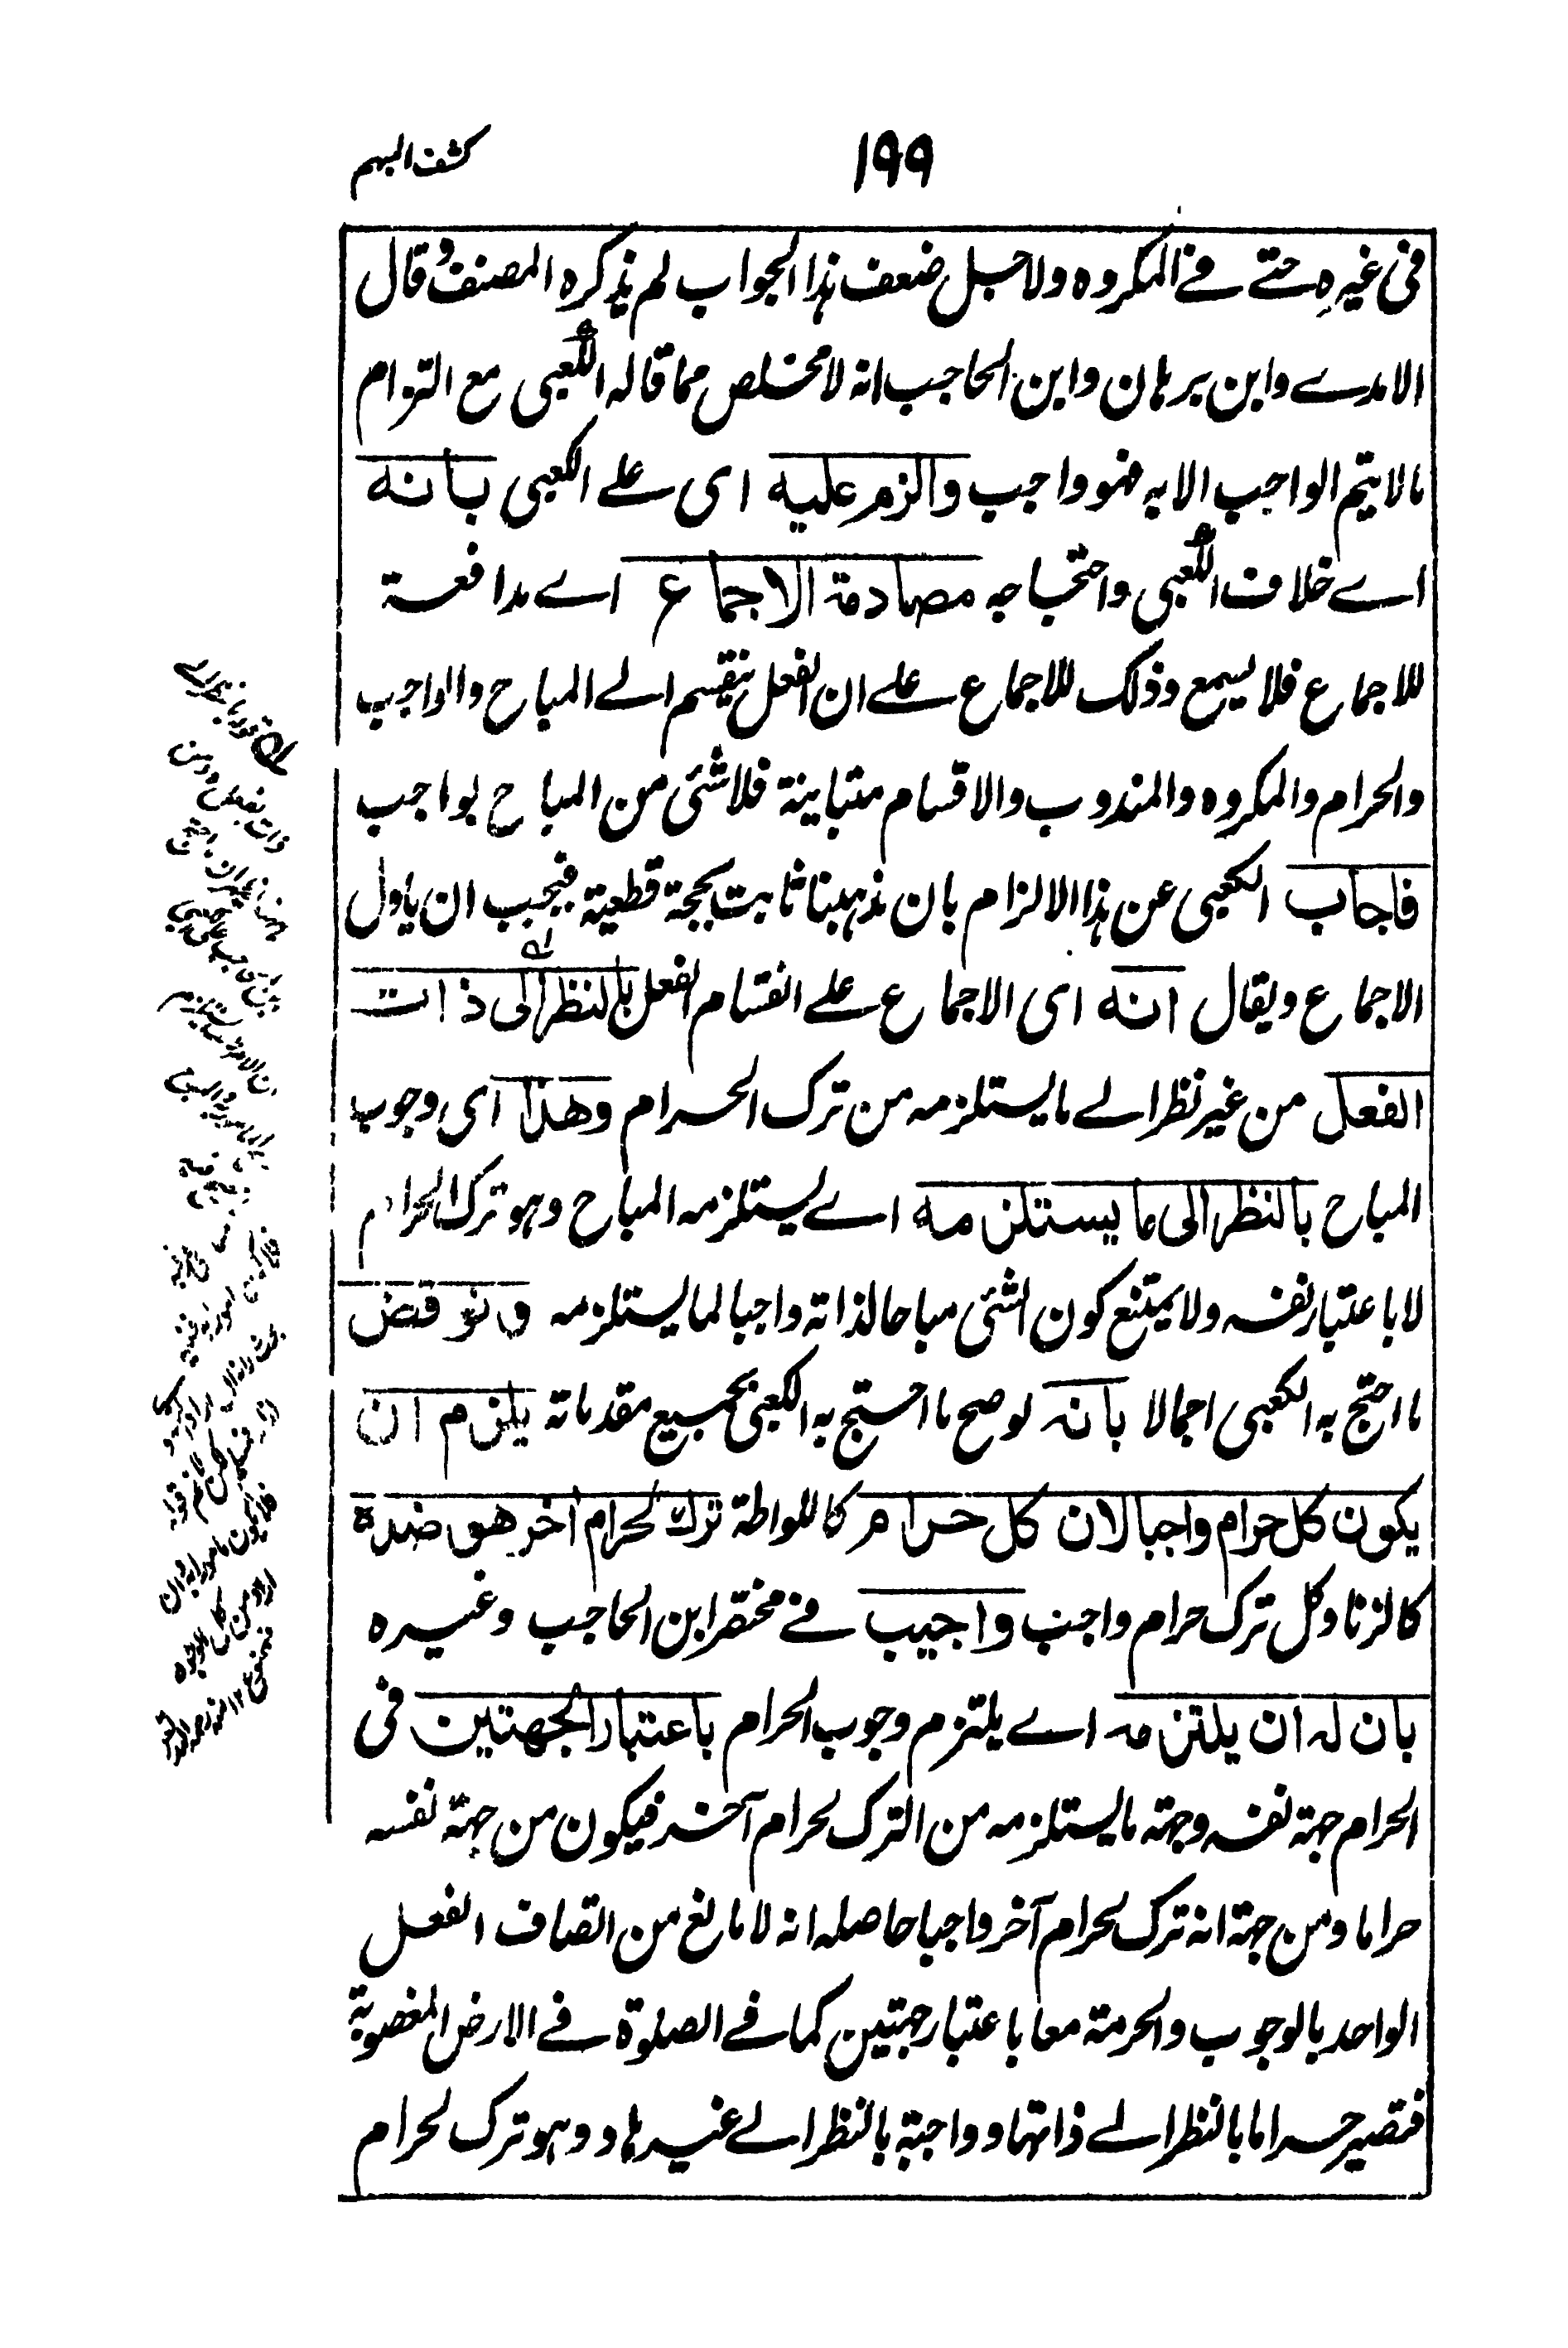 ١٩٩
كشف المبهم
فى غيره حتے فے المكروه ولاجل ضعف هذا الجواب لم يذكره المصنف و قال
الامدے وابن برهان وابن الحاجب انه لا مخلص مما قاله الكعبى مع التزام
ما لا يتم الواجب الا به فهو واجب والزم عليه اى علے الكعبى بانه
اے خلاف الكعبى واحتجاجه مصادمة الاجماع اے مدافعة
للاجماع فلا يسمع وذلك للاجماع علے ان الفعل ينقسم الے المباح والواجب
والحرام والمكروه والمندوب والاقسام متباينة فلا شئ من المباح بواجب
فاجاب الكعبى عن هذا الالزام بان مذهبنا ثابت بحجة قطعية فيجب ان ياول
الاجماع ويقال انه اى الاجماع علے انقسام الفعل بالنظر الى ذات
الفعل من غير نظر الے ما يستلزمه من ترك الحرام وهذا اى وجوب
المباح بالنظر الى ما يستلزمه اے يستلزمه المباح وهو ترك الحرام
لا باعتبار نفسه ولا يمتنع كون الشئ مباحا لذاته واجبا لما يستلزمه ونوقض
ما احتج به الكعبى اجمالا بانه لو صح ما احتج به الكعبى بجميع مقدماته يلزم ان
يكون كل حرام واجبا لان كل حرام كاللواطة ترك لحرام اخر هو ضده
كالزنا وكل ترك حرام واجب واجيب فے مختصر ابن الحاجب وغيره
بان له ان يلتزمه اے يلتزم وجوب الحرام باعتبار الجهتين فى
الحرام جهة نفسه وجهة ما يستلزمه من الترك لحرام آخر فيكون من جهة نفسه
حراما ومن جهة انه ترك لحرام آخر واجبا حاصله انه لا مانع من اتصاف الفعل
الواحد بالوجوب والحرمة معا باعتبار جهتين كما فے الصلوة فے الارض المغصوبة
فتصير حراما بالنظر الے ذاتها وواجبة بالنظر الے غيرها و وهو ترك لحرام